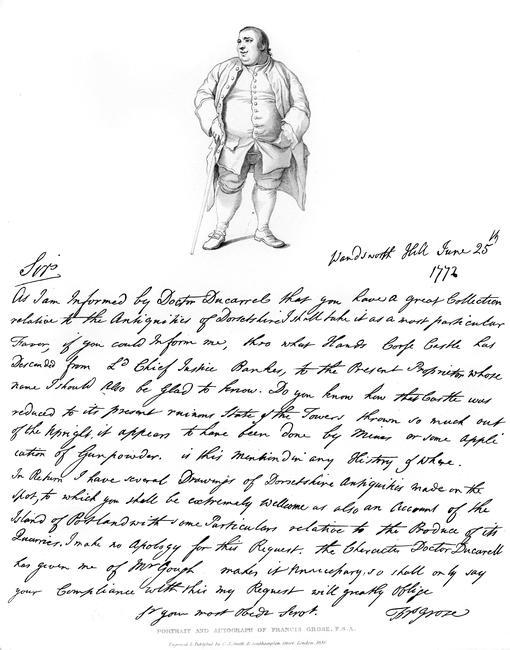 Wandsworth Hill June 25th
1772
Sir
As I am Informed by Doctor Ducarrel that you have a great Collection
relative to the Antiquities of Dorsetshire I shall take it as a most particular
Favor, if you could Inform me, thro what Hands Corfe Castle has
Descended from Ld Chief Justice Bankes, to the Present Proprietor whose
name I should Also be Glad to know. Do you know how this Castle was
reduced to its present ruinous State, & the Towers thrown so much out
of the Upright, it appears to have been done by Mines or some Appli
cation of Gunpowder. is this mentiond in any History & where.
In Return I have several Drawings of Dorsetshire Antiquities made on the
spot, to which you shall be extremely Wellcome as also an Account of the
Island of Portland with some Particulars relative to the Produce of its
Quarries. I make no Apology for this Request. the Character Doctor Ducarell
has given me of Mr Gough makes it Unnecessary, so shall only say
your Compliance with this my Request will greatly Oblige
Sr your most Obedt Servt. Frs Grose
PORTRAIT AND AUTOGRAPH OF FRANCIS GROSE, F.S.A.
Engraved & Published by C. J. Smith, Southampton Street, London